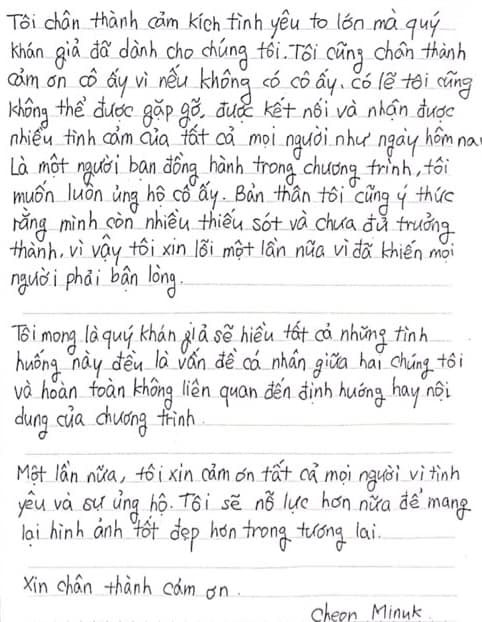 Tôi chân thành cảm kích tình yêu to lớn mà quý
khán giả đã dành cho chúng tôi. Tôi cũng chân thành
cảm ơn cô ấy vì nếu không có cô ấy, có lẽ tôi cũng
không thể được gặp gỡ, được kết nối và nhận được
nhiều tình cảm của tất cả mọi người như ngày hôm na
Là một người bạn đồng hành trong chương trình, tôi
muốn luôn ủng hộ cô ấy. Bản thân tôi cũng ý thức
rằng mình còn nhiều thiếu sót và chưa đủ trưởng
thành, vì vậy tôi xin lỗi một lần nữa vì đã khiến mọi
người phải bận lòng.
Tôi mong là quý khán giả sẽ hiểu tất cả những tình
huống này đều là vấn đề cá nhân giữa hai chúng tôi
và hoàn toàn không liên quan đến định hướng hay nội
dung của chương trình.
Một lần nữa, tôi xin cảm ơn tất cả mọi người vì tình
yêu và sự ủng hộ. Tôi sẽ nỗ lực hơn nữa để mang
lại hình ảnh tốt đẹp hơn trong tương lai.
Xin chân thành cảm ơn.
Cheon Minuk